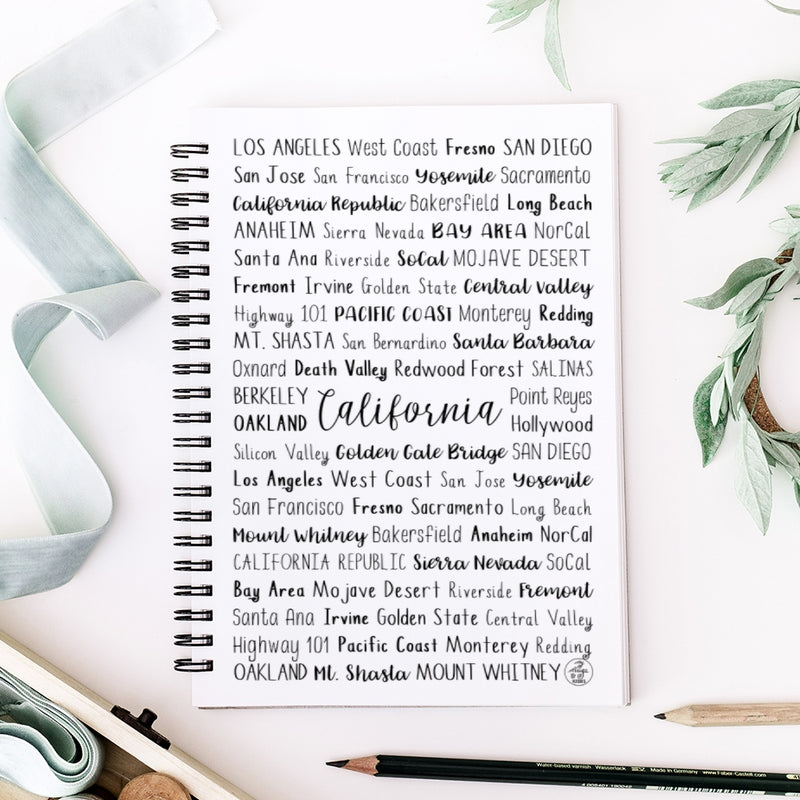 LOS ANGELES West Coast Fresno SAN DIEGO
San Jose San Francisco Yosemite Sacramento
California Republic Bakersfield Long Beach
ANAHEIM Sierra Nevada BAY AREA NorCal
Santa Ana Riverside SoCal MOJAVE DESERT
Fremont Irvine Golden State Central Valley
Highway 101 PACIFIC COAST Monterey Redding
MT. SHASTA San Bernardino Santa Barbara
Oxnard Death Valley Redwood Forest SALINAS
BERKELEY California Point Reyes
OAKLAND Hollywood
Silicon Valley Golden Gate Bridge SAN DIEGO
Los Angeles West Coast San Jose Yosemite
San Francisco Fresno Sacramento Long Beach
Mount Whitney Bakersfield Anaheim NorCal
CALIFORNIA REPUBLIC Sierra Nevada SoCal
Bay Area Mojave Desert Riverside Fremont
Santa Ana Irvine Golden State Central Valley
Highway 101 Pacific Coast Monterey Redding
OAKLAND Mt. Shasta MOUNT WHITNEY
Water-based varnish Wasserlack Made in Germany www.Faber-Castell.com